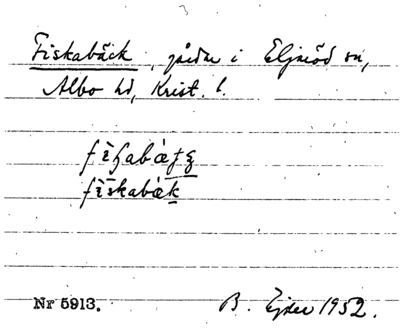 Fiskabäck, gårdar i Eljaröd sn,
Albo hd, Krist. l.
fìskabæ̀k
Nr 5913. B. Ejder 1952.